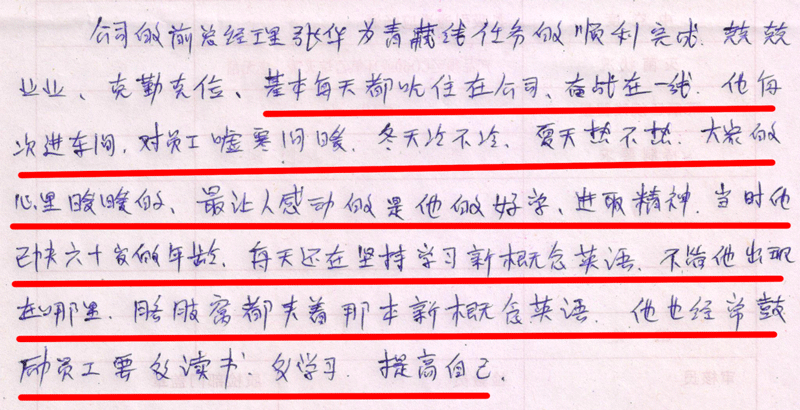 公司的前总经理张华为青藏线任务的顺利完成、兢兢
业业、克勤克俭、基本每天都吃住在公司、奋战在一线. 他每
次进车间, 对员工嘘寒问暖. 冬天冷不冷、夏天热不热. 大家的
心里暖暖的、最让人感动的是他的好学、进取精神. 当时他
已快六十岁的年龄、每天还在坚持学习新概念英语、不管他出现
在哪里. 胳肢窝都夹着那本新概念英语. 他也经常鼓
励员工要多读书. 多学习. 提高自己.